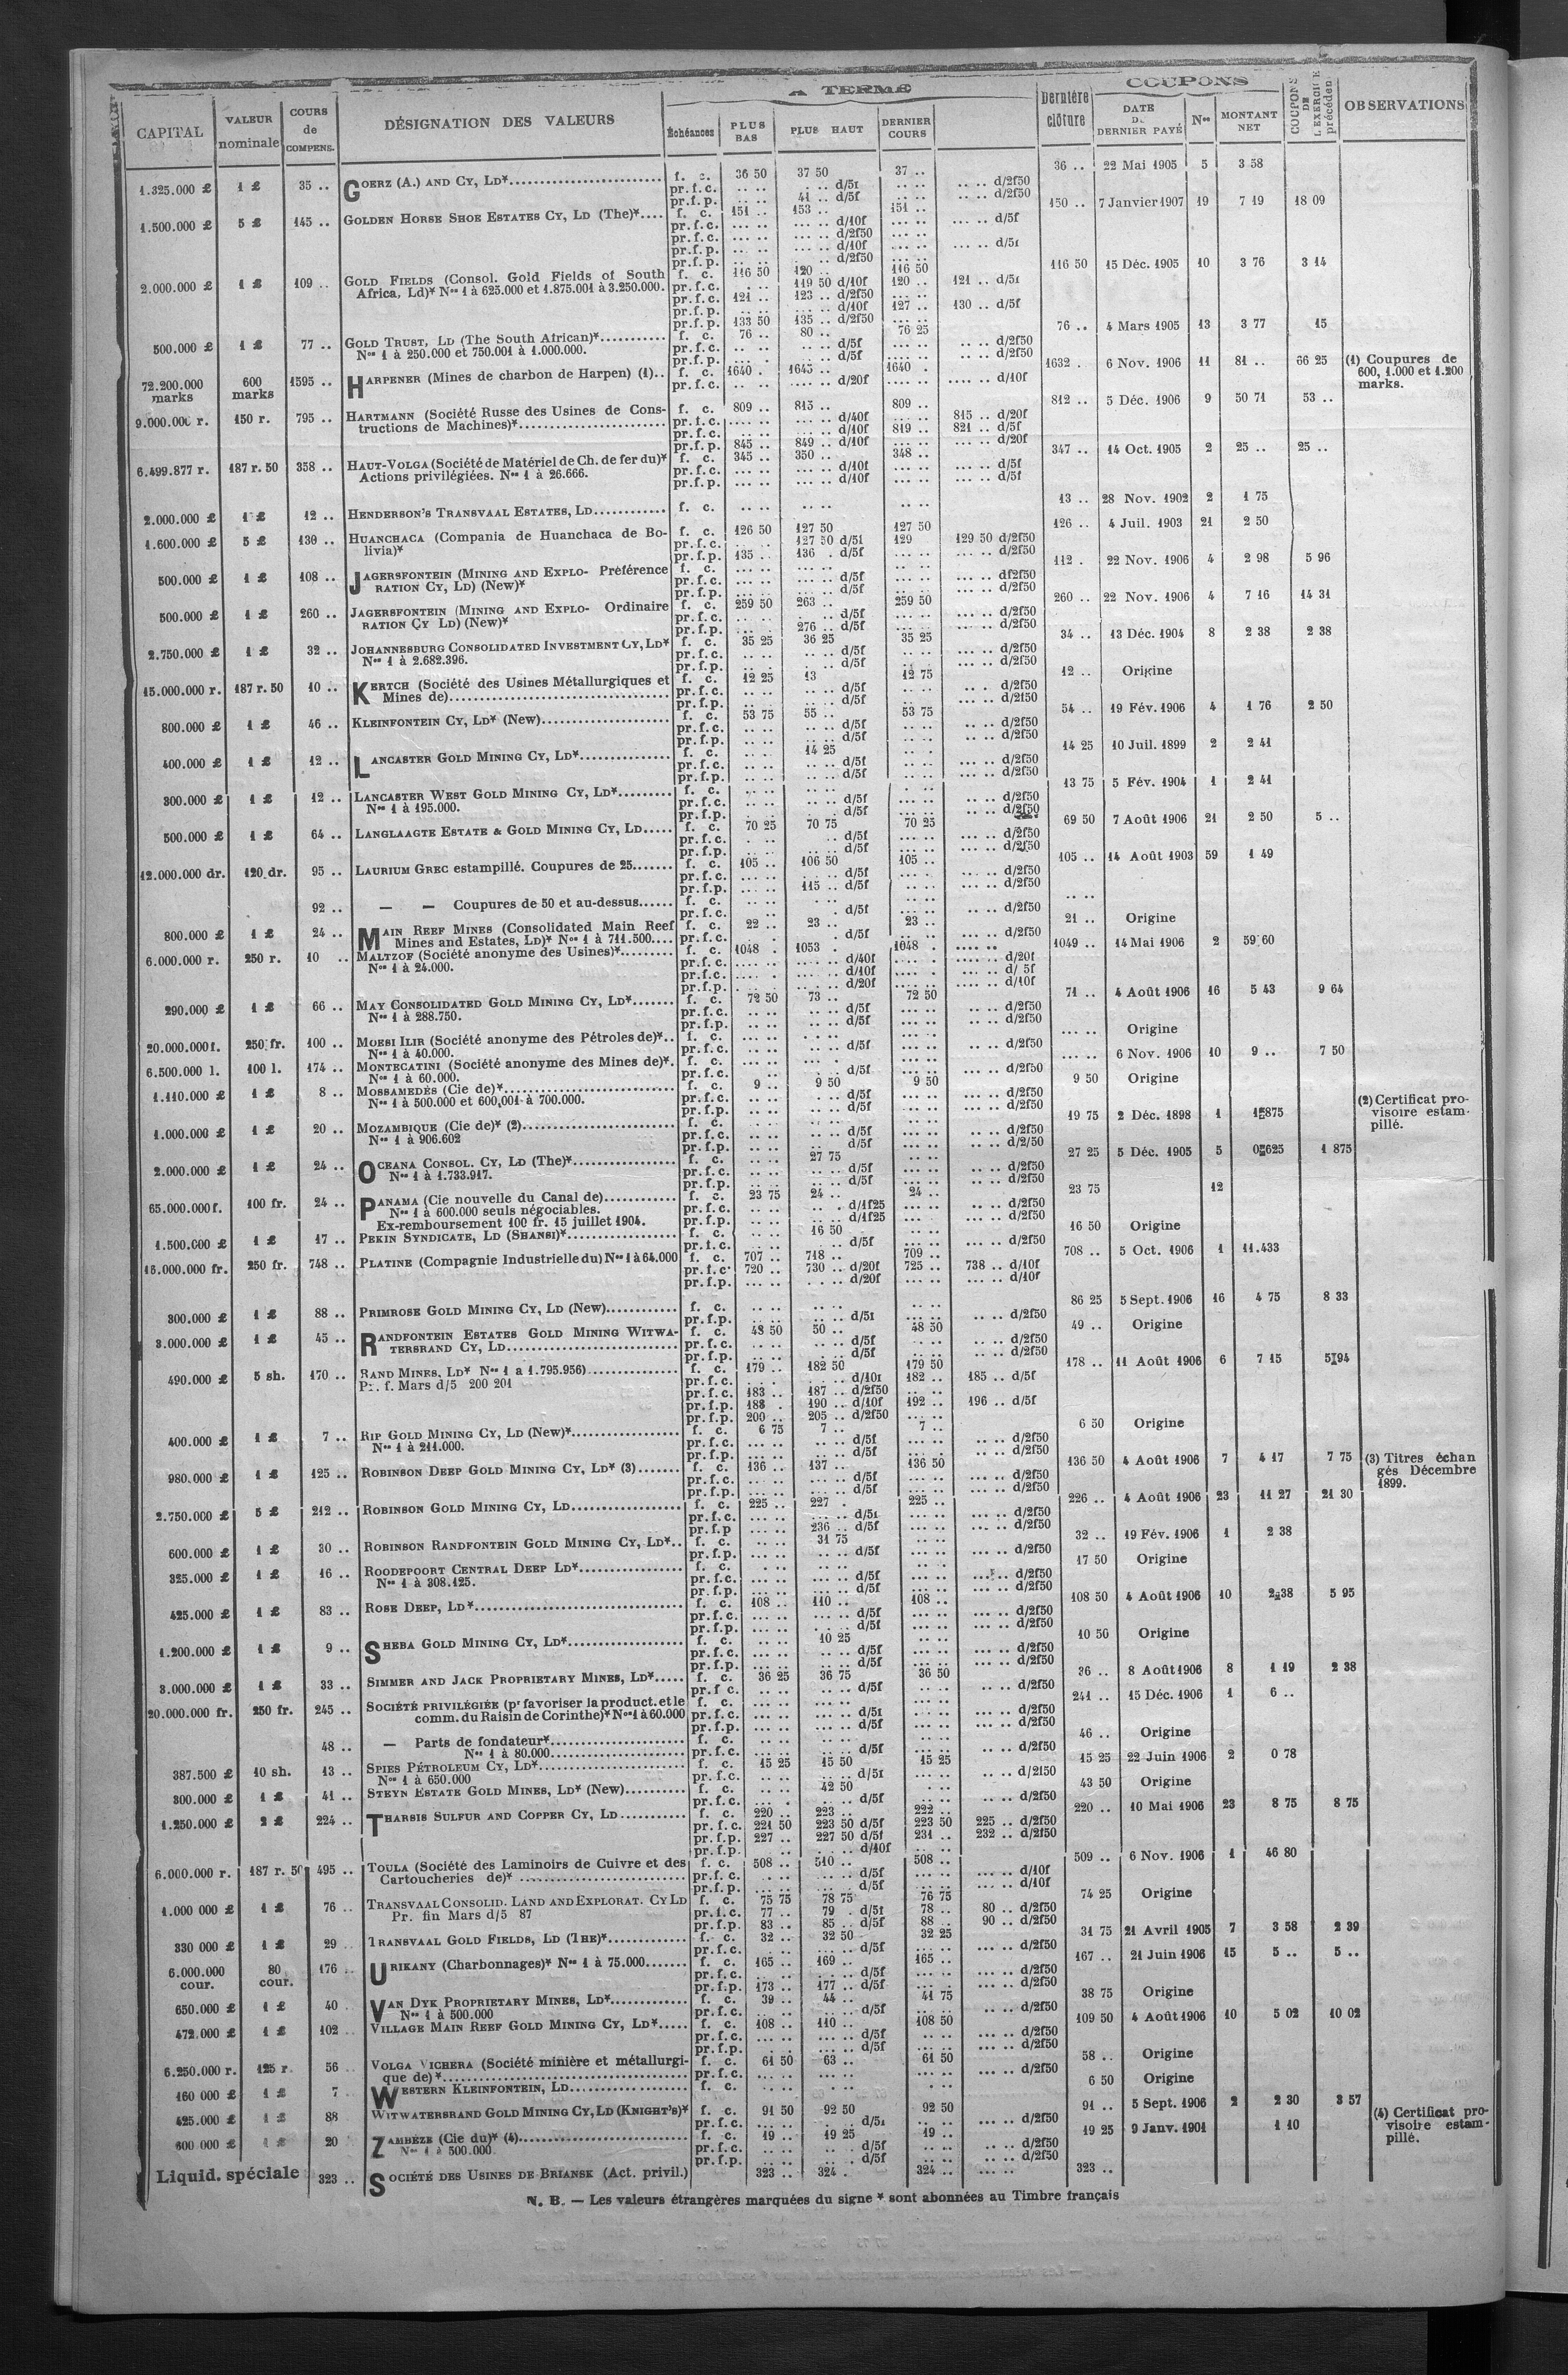 A TERME
COUPONS
CAPITAL VALEUR nominale COURS de COMPENS. DÉSIGNATION DES VALEURS Échéances PLUS BAS PLUS HAUT DERNIER COURS Dernière clôture DATE DU DERNIER PAYÉ Nos MONTANT NET COUPONS DE L'EXERCICE précédent OBSERVATIONS
1.325.000 £ 1 £ 35 .. GOERZ (A.) AND CY, LD* f. c. 36 50 37 50 37 .. 36 .. 22 Mai 1905 5 3 58
pr.f.c. .. .. .. .. d/5f .. .. .. .. d/2f50
pr.f.p. .. .. 41 .. d/5f .. .. .. .. d/2f50
1.500.000 £ 5 £ 145 .. GOLDEN HORSE SHOE ESTATES CY, LD (The)* f. c. 151 .. 153 .. 151 .. 150 .. 7 Janvier 1907 19 7 19 18 09
pr.f.c. ... .. ... .. d/10f ... .. ... .. d/5f
pr.f.c. ... .. ... .. d/2f50 ... ..
pr.f.p. ... .. ... .. d/10f ... .. ... .. d/5f
pr.f.p. ... .. ... .. d/2f50
2.000.000 £ 1 £ 109 .. GOLD FIELDS (Consol. Gold Fields of South f. c. 116 50 120 .. 116 50 116 50 15 Déc. 1905 10 3 76 3 14
Africa, Ld)* Nos 1 à 625.000 et 1.875.001 à 3.250.000. pr.f.c. 119 50 d/10f 120 .. 121 .. d/5f
pr.f.c. 121 .. 123 .. d/2f50
pr.f.p. .. .. d/10f 127 .. 130 .. d/5f
pr.f.p. 133 50 135 .. d/2f50
500.000 £ 1 £ 77 .. GOLD TRUST, LD (The South African)* f. c. 76 .. 80 .. 76 25 76 .. 4 Mars 1905 13 3 77 15
Nos 1 à 250.000 et 750.001 à 1.000.000. pr.f.c. .. .. d/5f .. .. d/2f50
pr.f.p. .. .. d/5f .. .. d/2f50
72.200.000 marks 600 marks 1595 .. HARPENER (Mines de charbon de Harpen) (1).. f. c. 1640 . 1645 .. 1640 . 1632 . 6 Nov. 1906 11 81 .. 66 25 (1) Coupures de 600, 1.000 et 1.200 marks.
pr.f.c. .. .. .... .. d/20f .... .. .... .. d/10f
9.000.000 r. 150 r. 795 .. HARTMANN (Société Russe des Usines de Cons- f. c. 809 .. 815 .. 809 .. 812 .. 5 Déc. 1906 9 50 71 53 ..
tructions de Machines)* pr.f.c. ... .. d/40f 815 .. d/20f
pr.f.c. ... .. d/10f 819 .. 821 .. d/5f
pr.f.p. 845 .. 849 .. d/10f ... .. d/20f
6.499.877 r. 187 r. 50 358 .. HAUT-VOLGA (Société de Matériel de Ch. de fer du)* f. c. 345 .. 350 .. 348 .. 347 .. 14 Oct. 1905 2 25 .. 25 ..
Actions privilégiées. Nos 1 à 26.666. pr.f.c. ... .. d/10f ... .. d/5f
pr.f.p. ... .. d/10f ... .. d/5f
2.000.000 £ 1 £ 12 .. HENDERSON'S TRANSVAAL ESTATES, LD f. c. .. .. .. .. .. .. 13 .. 28 Nov. 1902 2 1 75
1.600.000 £ 5 £ 130 .. HUANCHACA (Compania de Huanchaca de Bo- f. c. 126 50 127 50 127 50 126 .. 4 Juil. 1903 21 2 50
livia)* pr.f.c. ... .. 127 50 d/5f 129 129 50 d/2f50
pr.f.p. 135 .. 136 . d/5f ... .. ... .. d/2f50
500.000 £ 1 £ 108 .. JAGERSFONTEIN (MINING AND EXPLO- Préférence f. c. ... .. ... .. ... .. 112 . 22 Nov. 1906 4 2 98 5 96
RATION CY, LD) (New)* pr.f.c. ... .. d/5f ... .. df2f50
pr.f.p. ... .. d/5f ... .. d/2f50
500.000 £ 1 £ 260 .. JAGERSFONTEIN (MINING AND EXPLO- Ordinaire f. c. 259 50 263 .. 259 50 260 .. 22 Nov. 1906 4 7 16 14 31
RATION CY LD) (New)* pr.f.c. ... .. d/5f ... .. d/2f50
pr.f.p. 276 .. d/5f ... .. d/2f50
2.750.000 £ 1 £ 32 .. JOHANNESBURG CONSOLIDATED INVESTMENT CY, LD* f. c. 35 25 36 25 35 25 34 .. 13 Déc. 1904 8 2 38 2 38
Nos 1 à 2.682.396. pr.f.c. .. .. d/5f ... .. d/2f50
pr.f.p. .. .. d/5f ... .. d/2f50
15.000.000 r. 187 r. 50 10 .. KERTCH (Société des Usines Métallurgiques et f. c. 12 25 13 12 75 12 .. Origine
Mines de) pr.f.c. .. .. d/5f .. . d/2f50
pr.f.p. .. .. d/5f .. .. d/2f50
800.000 £ 1 £ 46 .. KLEINFONTEIN CY, LD* (New) f. c. 53 75 55 .. 53 75 54 .. 19 Fév. 1906 4 1 76 2 50
pr.f.c. .. .. d/5f .. .. d/2f50
pr.f.p. .. .. d/5f .. .. d/2f50
400.000 £ 1 £ 12 .. LANCASTER GOLD MINING CY, LD* f. c. 14 25 14 25 10 Juil. 1899 2 2 41
pr.f.c. .. .. d/5f ... .. d/2f50
pr.f.p. .. .. d/5f ... .. d/2f50
300.000 £ 1 £ 12 .. LANCASTER WEST GOLD MINING CY, LD* f. c. .. .. .. .. 13 75 5 Fév. 1904 1 2 41
Nos 1 à 195.000. pr.f.c. .. .. d/5f .. .. d/2f50
pr.f.p. .. .. d/5f ... .. d/2f50
500.000 £ 1 £ 64 .. LANGLAAGTE ESTATE & GOLD MINING CY, LD f. c. 70 25 70 75 70 25 69 50 7 Août 1906 21 2 50 5 ..
pr.f.c. .. d/5f ... .. d/2f50
pr.f.p. .. .. d/5f ... .. d/2f50
12.000.000 dr. 120 dr. 95 .. LAURIUM GREC estampillé. Coupures de 25 f. c. 105 .. 106 50 105 .. 105 .. 14 Août 1903 59 1 49
pr.f.c. ... .. d/5f ... .. d/2f50
pr.f.p. 115 .. d/5f ... .. d/2f50
92 .. — — Coupures de 50 et au-dessus f. c. .. .. .. .. .. ..
pr.f.c. . d/5f .. .. d/2f50
800.000 £ 1 £ 24 .. MAIN REEF MINES (Consolidated Main Reef f. c. 22 .. 23 .. 23 .. 21 .. Origine
Mines and Estates, LD)* Nos 1 à 711.500 pr.f.c. . d/5f .. .. d/2f50
6.000.000 r. 250 r. 10 .. MALTZOF (Société anonyme des Usines)* f. c. 1048 . 1053 . 1048 . .... .. 1049 .. 14 Mai 1906 2 59 60
Nos 1 à 24.000. pr.f.c. .... .. d/40f .... .. d/20f
pr.f.c. .... . d/10f .... . d/ 5f
pr.f.p. .... . d/20f .... .. d/10f
290.000 £ 1 £ 66 .. MAY CONSOLIDATED GOLD MINING CY, LD* f. c. 72 50 73 .. 72 50 71 .. 4 Août 1906 16 5 43 9 64
Nos 1 à 288.750. pr.f.c. .. .. d/5f ... .. d/2f50
pr.f.p. .. .. d/5f ... .. d/2f50
20.000.000 f. 250 fr. 100 .. MOESI ILIR (Société anonyme des Pétroles de)* f. c. .. .. ... .. Origine
Nos 1 à 40.000. pr.f.c. .. .. d/5f .. .. d/2f50
6.500.000 l. 100 l. 174 .. MONTECATINI (Société anonyme des Mines de)* f. c. .. .. ... .. 6 Nov. 1906 10 9 .. 7 50
Nos 1 à 60.000. pr.f.c. . d/5f ... .. d/2f50
1.110.000 £ 1 £ 8 .. MOSSAMEDÉS (Cie de)* f. c. 9 .. 9 50 9 50 9 50 Origine
Nos 1 à 500.000 et 600,001 à 700.000. pr.f.c. .. .. d/5f ... .. d/2f50
pr.f.p. .. .. d/5f ... .. d/2f50
1.000.000 £ 1 £ 20 .. MOZAMBIQUE (Cie de)* (2) f. c. 19 75 2 Déc. 1898 1 1f875 (2) Certificat provisoire estampillé.
Nos 1 à 906.602 pr.f.c. .. .. d/5f .. .. d/2f50
pr.f.p. .. .. d/5f .. .. d/2/50
2.000.000 £ 1 £ 24 .. OCEANA CONSOL. CY, LD (The)* f. c. 27 75 27 25 5 Déc. 1905 5 0f625 1 875
Nos 1 à 1.733.917. pr.f.c. .. .. d/5f .. .. d/2f50
pr.f.p. .. .. d/5f .. .. d/2f50
65.000.000 f. 100 fr. 24 .. PANAMA (Cie nouvelle du Canal de) f. c. 23 75 24 .. 24 .. 23 75 12
Nos 1 à 600.000 seuls négociables. pr.f.c. .. . d/1f25 ... .. d/2f50
Ex-remboursement 100 fr. 15 juillet 1904. pr.f.p. .. .. d/1f25 ... .. d/2f50
1.500.000 £ 1 £ 17 .. PEKIN SYNDICATE, LD (SHANSI)* f. c. 16 50 16 50 Origine
pr.f.c. .. d/5f ... .. d/2f50
16.000.000 fr. 250 fr. 748 .. PLATINE (Compagnie Industrielle du) Nos 1 à 64.000 f. c. 707 .. 718 .. 709 .. 708 .. 5 Oct. 1906 1 11.433
pr.f.c. 720 .. 730 .. d/20f 725 .. 738 .. d/10f
pr.f.p. ... .. . .. d/20f ... .. ... .. d/10f
300.000 £ 1 £ 88 .. PRIMROSE GOLD MINING CY, LD (New) f. c. .. .. .. .. 86 25 5 Sept. 1906 16 4 75 8 33
pr.f.p. .. .. d/5f .. .. d/2f50
3.000.000 £ 1 £ 45 .. RANDFONTEIN ESTATES GOLD MINING WITWA- f. c. 48 50 50 .. 48 50 49 .. Origine
TERSRAND CY, LD pr.f.c. .. .. d/5f .. .. d/2f50
pr.f.p. .. .. d/5f .. .. d/2f50
490.000 £ 5 sh. 170 .. RAND MINES, LD* Nos 1 a 1.795.956) f. c. 179 .. 182 50 179 50 178 .. 11 Août 1906 6 7 15 5f94
Pr. f. Mars d/5 200 201 pr.f.c. ... .. d/10f 182 .. 185 .. d/5f
pr.f.c. 183 .. 187 .. d/2f50
pr.f.p. 188 . 190 .. d/10f 192 .. 196 .. d/5f
pr.f.p. 200 .. 205 .. d/2f50
400.000 £ 1 £ 7 .. RIP GOLD MINING CY, LD (New)* f. c. 6 75 7 .. 7 .. 6 50 Origine
Nos 1 à 211.000. pr.f.c. .. .. d/5f .. .. d/2f50
pr.f.p. .. .. d/5f .. .. d/2f50
980.000 £ 1 £ 125 .. ROBINSON DEEP GOLD MINING CY, LD* (3) f. c. 136 .. 137 .. 136 50 136 50 4 Août 1906 7 4 17 7 75 (3) Titres échangés Décembre 1899.
pr.f.c. ... .. d/5f ... .. d/2f50
pr.f.p. ... .. d/5f ... .. d/2f50
2.750.000 £ 5 £ 212 .. ROBINSON GOLD MINING CY, LD f. c. 225 .. 227 . 225 .. 226 .. 4 Août 1906 23 11 27 21 30
pr.f.c. ... .. d/5f ... .. d/2f50
pr.f.p 236 .. d/5f ... .. d/2f50
600.000 £ 1 £ 30 .. ROBINSON RANDFONTEIN GOLD MINING CY, LD* f. c. 31 75 32 .. 19 Fév. 1906 1 2 38
pr.f.p. .. .. d/5f ... .. d/2f50
325.000 £ 1 £ 16 .. ROODEPOORT CENTRAL DEEP LD* f. c. 17 50 Origine
Nos 1 à 308.125. pr.f.c. .. .. d/5f ... .. d/2f50
pr.f.p. .. .. d/5f ... .. d/2f50
425.000 £ 1 £ 83 .. ROSE DEEP, LD* f. c. 108 .. 110 .. 108 .. 108 50 4 Août 1906 10 2f38 5 95
pr.f.c. ... .. d/5f ... .. d/2f50
pr.f.p. . .. d/5f ... .. d/2f50
1.200.000 £ 1 £ 9 .. SHEBA GOLD MINING CY, LD* f. c. 10 25 10 50 Origine
pr.f.c. .. .. d/5f ... .. d/2f50
pr.f.p. .. .. d/5f ... .. d/2f50
3.000.000 £ 1 £ 33 .. SIMMER AND JACK PROPRIETARY MINES, LD* f. c. 36 25 36 75 36 50 36 .. 8 Août 1906 8 1 19 2 38
pr.f c. .. .. d/5f ... .. d/2f50
20.000.000 fr. 250 fr. 245 .. SOCIÉTÉ PRIVILÉGIÉE (pr favoriser la product. et le f. c. ... .. ... .. 241 .. 15 Déc. 1906 1 6 ..
comm. du Raisin de Corinthe)* Nos 1 à 60.000 pr.f.c. ... .. d/5f ... .. d/2f50
pr.f.p. ... .. d/5f ... .. d/2f50
48 .. — Parts de fondateur* f. c. .. .. .. .. 46 .. Origine
Nos 1 à 80.000 pr.f.c. ... .. d/5f ... .. d/2f50
387.500 £ 10 sh. 13 .. SPIES PÉTROLEUM CY, LD* f. c. 15 25 15 50 15 25 15 25 22 Juin 1906 2 0 78
Nos 1 à 650.000 pr.f.c. .. .. d/5f .. .. d/2f50
300.000 £ 1 £ 41 .. STEYN ESTATE GOLD MINES, LD* (New) f. c. 42 50 43 50 Origine
pr.f.c. .. .. d/5f ... .. d/2f50
1.250.000 £ 2 £ 224 .. THARSIS SULFUR AND COPPER CY, LD f. c. 220 .. 223 .. 222 .. 220 .. 10 Mai 1906 23 8 75 8 75
pr.f.c. 221 50 223 50 d/5f 223 50 225 .. d/2f50
pr.f.p. 227 .. 227 50 d/5f 231 .. 232 .. d/2f50
pr.f.p. . .. d/10f
6.000.000 r. 187 r. 50 495 .. TOULA (Société des Laminoirs de Cuivre et des f. c. 508 .. 510 .. 508 .. 509 .. 6 Nov. 1906 1 46 80
Cartoucheries de)* pr.f.c. ... .. d/5f ... .. d/10f
pr.f.p. ... .. d/5f ... .. d/10f
1.000 000 £ 1 £ 76 .. TRANSVAAL CONSOLID. LAND AND EXPLORAT. CY LD f. c. 75 75 78 75 76 75 74 25 Origine
Pr. fin Mars d/5 87 pr.f.c. 77 .. 79 . d/5f 78 .. 80 .. d/2f50
pr.f.p. 83 .. 85 .. d/5f 88 .. 90 .. d/2f50
330 000 £ 1 £ 29 TRANSVAAL GOLD FIELDS, LD (THE)* f. c. 32 .. 32 50 32 25 31 75 21 Avril 1905 7 3 58 2 39
pr.f.c. .. .. d/5f ... .. d/2f50
6.000.000 cour. 80 cour. 176 .. URIKANY (Charbonnages)* Nos 1 à 75.000 f. c. 165 .. 169 .. 165 .. 167 .. 21 Juin 1906 15 5 .. 5 ..
pr.f.c. . .. d/5f ... .. d/2f50
pr.f.p. 173 .. 177 .. d/5f ... .. d/2f50
650.000 £ 1 £ 40 .. VAN DYK PROPRIETARY MINES, LD* f. c. 39 .. 44 .. 41 75 38 75 Origine
Nos 1 à 500.000 pr.f.c. .. .. d/5f .. .. d/2f50
472.000 £ 1 £ 102 .. VILLAGE MAIN REEF GOLD MINING CY, LD* f. c. 108 .. 110 .. 108 50 109 50 4 Août 1906 10 5 02 10 02
pr.f.c. ... .. d/5f ... .. d/2f50
pr.f.p. ... .. d/5f ... .. d/2f50
6.250.000 r. 125 r. 56 VOLGA VICHERA (Société minière et métallurgi- f. c. 61 50 63 .. 61 50 58 .. Origine
que de)* pr.f.c. ... .. ... .. ... .. ... .. d/2f50
160 000 £ 1 £ 7 WESTERN KLEINFONTEIN, LD f. c. .. .. .. .. 6 50 Origine
425.000 £ 1 £ 88 WITWATERSRAND GOLD MINING CY, LD (KNIGHT'S)* f. c. 91 50 92 50 92 50 91 .. 5 Sept. 1906 2 2 30 3 57
pr.f.c. .. .. d/5f ... .. d/2f50
600 000 £ 1 £ 20 ZAMBÈZE (Cie du)* (4) f. c. 19 .. 19 25 19 .. 19 25 9 Janv. 1901 1 10 (4) Certificat provisoire estampillé.
Nos 1 à 500.000. pr.f.c. .. .. d/5f .. .. d/2f50
pr.f.p. .. .. d/5f .. .. d/2f50
Liquid. spéciale 323 .. SOCIÉTÉ DES USINES DE BRIANSK (Act. privil.) 323 .. 324 . 324 .. ... .. 323 ..
N. B. — Les valeurs étrangères marquées du signe * sont abonnées au Timbre français